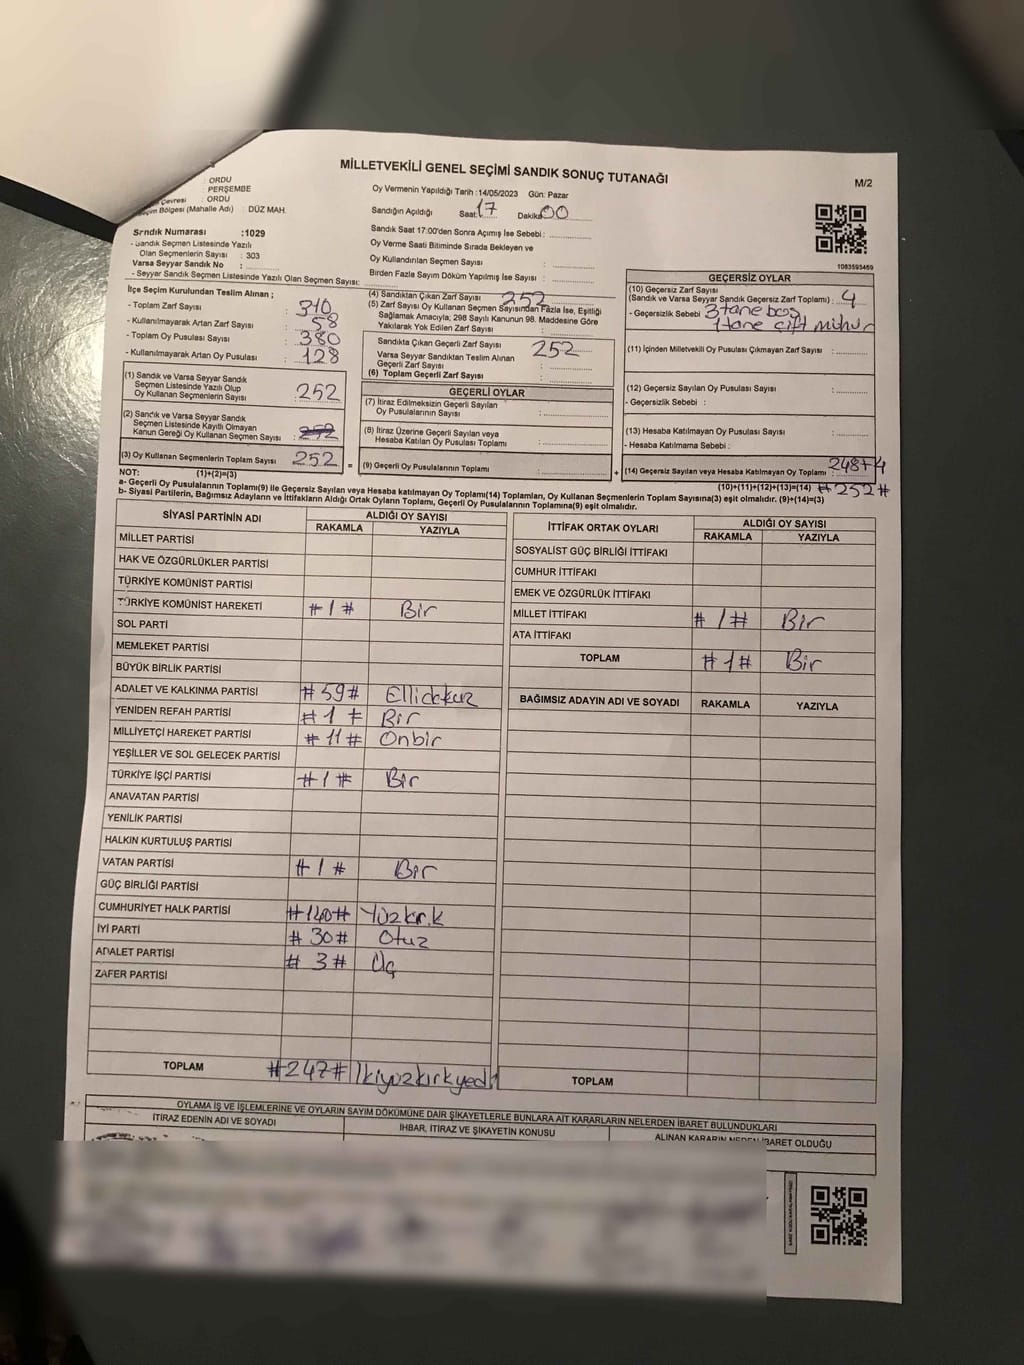 MİLLETVEKİLİ GENEL SEÇİMİ SANDIK SONUÇ TUTANAĞI
M/2
: ORDU
: PERŞEMBE
Çevresi : ORDU
Bölgesi (Mahalle Adı) : DÜZ MAH.
Sandık Numarası :1029
- Sandık Seçmen Listesinde Yazılı
Olan Seçmenlerin Sayısı : 303
Varsa Seyyar Sandık No :
- Seyyar Sandık Seçmen Listesinde Yazılı Olan Seçmen Sayısı:
Oy Vermenin Yapıldığı Tarih :14/05/2023 Gün: Pazar
Sandığın Açıldığı Saat: 17 Dakika: 00
Sandık Saat 17:00'den Sonra Açımış İse Sebebi:
Oy Verme Saati Bitiminde Sırada Bekleyen ve
Oy Kullandırılan Seçmen Sayısı :
Birden Fazla Sayım Döküm Yapılmış İse Sayısı :
1083593469
İlçe Seçim Kurulundan Teslim Alınan ;
- Toplam Zarf Sayısı : 310
- Kullanılmayarak Artan Zarf Sayısı : 58
- Toplam Oy Pusulası Sayısı : 380
- Kullanılmayarak Artan Oy Pusulası : 128
(1) Sandık ve Varsa Seyyar Sandık
Seçmen Listesinde Yazılı Olup
Oy Kullanan Seçmenlerin Sayısı : 252
(2) Sandık ve Varsa Seyyar Sandık
Seçmen Listesinde Kayıtlı Olmayan
Kanun Gereği Oy Kullanan Seçmen Sayısı : 252
(3) Oy Kullanan Seçmenlerin Toplam Sayısı : 252
(4) Sandıktan Çıkan Zarf Sayısı : 252
(5) Zarf Sayısı Oy Kullanan Seçmen Sayısından Fazla İse, Eşitliği
Sağlamak Amacıyla; 298 Sayılı Kanunun 98. Maddesine Göre
Yakılarak Yok Edilen Zarf Sayısı :
Sandıkta Çıkan Geçerli Zarf Sayısı : 252
Varsa Seyyar Sandıktan Teslim Alınan
Geçerli Zarf Sayısı :
(6) Toplam Geçerli Zarf Sayısı :
GEÇERLİ OYLAR
(7) İtiraz Edilmeksizin Geçerli Sayılan
Oy Pusulalarının Sayısı :
(8) İtiraz Üzerine Geçerli Sayılan veya
Hesaba Katılan Oy Pusulası Toplamı :
= (9) Geçerli Oy Pusulalarının Toplamı :
GEÇERSİZ OYLAR
(10) Geçersiz Zarf Sayısı
(Sandık ve Varsa Seyyar Sandık Geçersiz Zarf Toplamı) : 4
- Geçersizlik Sebebi : 3 tane boş
1 tane çift mühür
(11) İçinden Milletvekili Oy Pusulası Çıkmayan Zarf Sayısı :
(12) Geçersiz Sayılan Oy Pusulası Sayısı :
- Geçersizlik Sebebi :
(13) Hesaba Katılmayan Oy Pusulası Sayısı :
- Hesaba Katılmama Sebebi :
+ (14) Geçersiz Sayılan veya Hesaba Katılmayan Oy Toplamı : 248+4
(10)+(11)+(12)+(13)=(14) #252#
NOT: (1)+(2)=(3)
a- Geçerli Oy Pusulalarının Toplamı(9) ile Geçersiz Sayılan veya Hesaba katılmayan Oy Toplamı(14) Toplamları, Oy Kullanan Seçmenlerin Toplam Sayısına(3) eşit olmalıdır. (9)+(14)=(3)
b- Siyasi Partilerin, Bağımsız Adayların ve İttifakların Aldığı Ortak Oyların Toplamı, Geçerli Oy Pusulalarının Toplamına(9) eşit olmalıdır.
SİYASİ PARTİNİN ADI ALDIĞI OY SAYISI
RAKAMLA YAZIYLA
MİLLET PARTİSİ
HAK VE ÖZGÜRLÜKLER PARTİSİ
TÜRKİYE KOMÜNİST PARTİSİ
TÜRKİYE KOMÜNİST HAREKETİ #1# Bir
SOL PARTİ
MEMLEKET PARTİSİ
BÜYÜK BİRLİK PARTİSİ
ADALET VE KALKINMA PARTİSİ #59# Ellidokuz
YENİDEN REFAH PARTİSİ #1# Bir
MİLLİYETÇİ HAREKET PARTİSİ #11# Onbir
YEŞİLLER VE SOL GELECEK PARTİSİ
TÜRKİYE İŞÇİ PARTİSİ #1# Bir
ANAVATAN PARTİSİ
YENİLİK PARTİSİ
HALKIN KURTULUŞ PARTİSİ
VATAN PARTİSİ #1# Bir
GÜÇ BİRLİĞİ PARTİSİ
CUMHURİYET HALK PARTİSİ #140# Yüzkırk
İYİ PARTİ #30# Otuz
ADALET PARTİSİ #3# Üç
ZAFER PARTİSİ
TOPLAM #247# İkiyüzkırkyedi
İTTİFAK ORTAK OYLARI ALDIĞI OY SAYISI
RAKAMLA YAZIYLA
SOSYALİST GÜÇ BİRLİĞİ İTTİFAKI
CUMHUR İTTİFAKI
EMEK VE ÖZGÜRLÜK İTTİFAKI
MİLLET İTTİFAKI #1# Bir
ATA İTTİFAKI
TOPLAM #1# Bir
BAĞIMSIZ ADAYIN ADI VE SOYADI RAKAMLA YAZIYLA
TOPLAM
OYLAMA İŞ VE İŞLEMLERİNE VE OYLARIN SAYIM DÖKÜMÜNE DAİR ŞİKAYETLERLE BUNLARA AİT KARARLARIN NELERDEN İBARET BULUNDUKLARI
İTİRAZ EDENİN ADI VE SOYADI İHBAR, İTİRAZ VE ŞİKAYETİN KONUSU ALINAN KARARIN NEDEN İBARET OLDUĞU